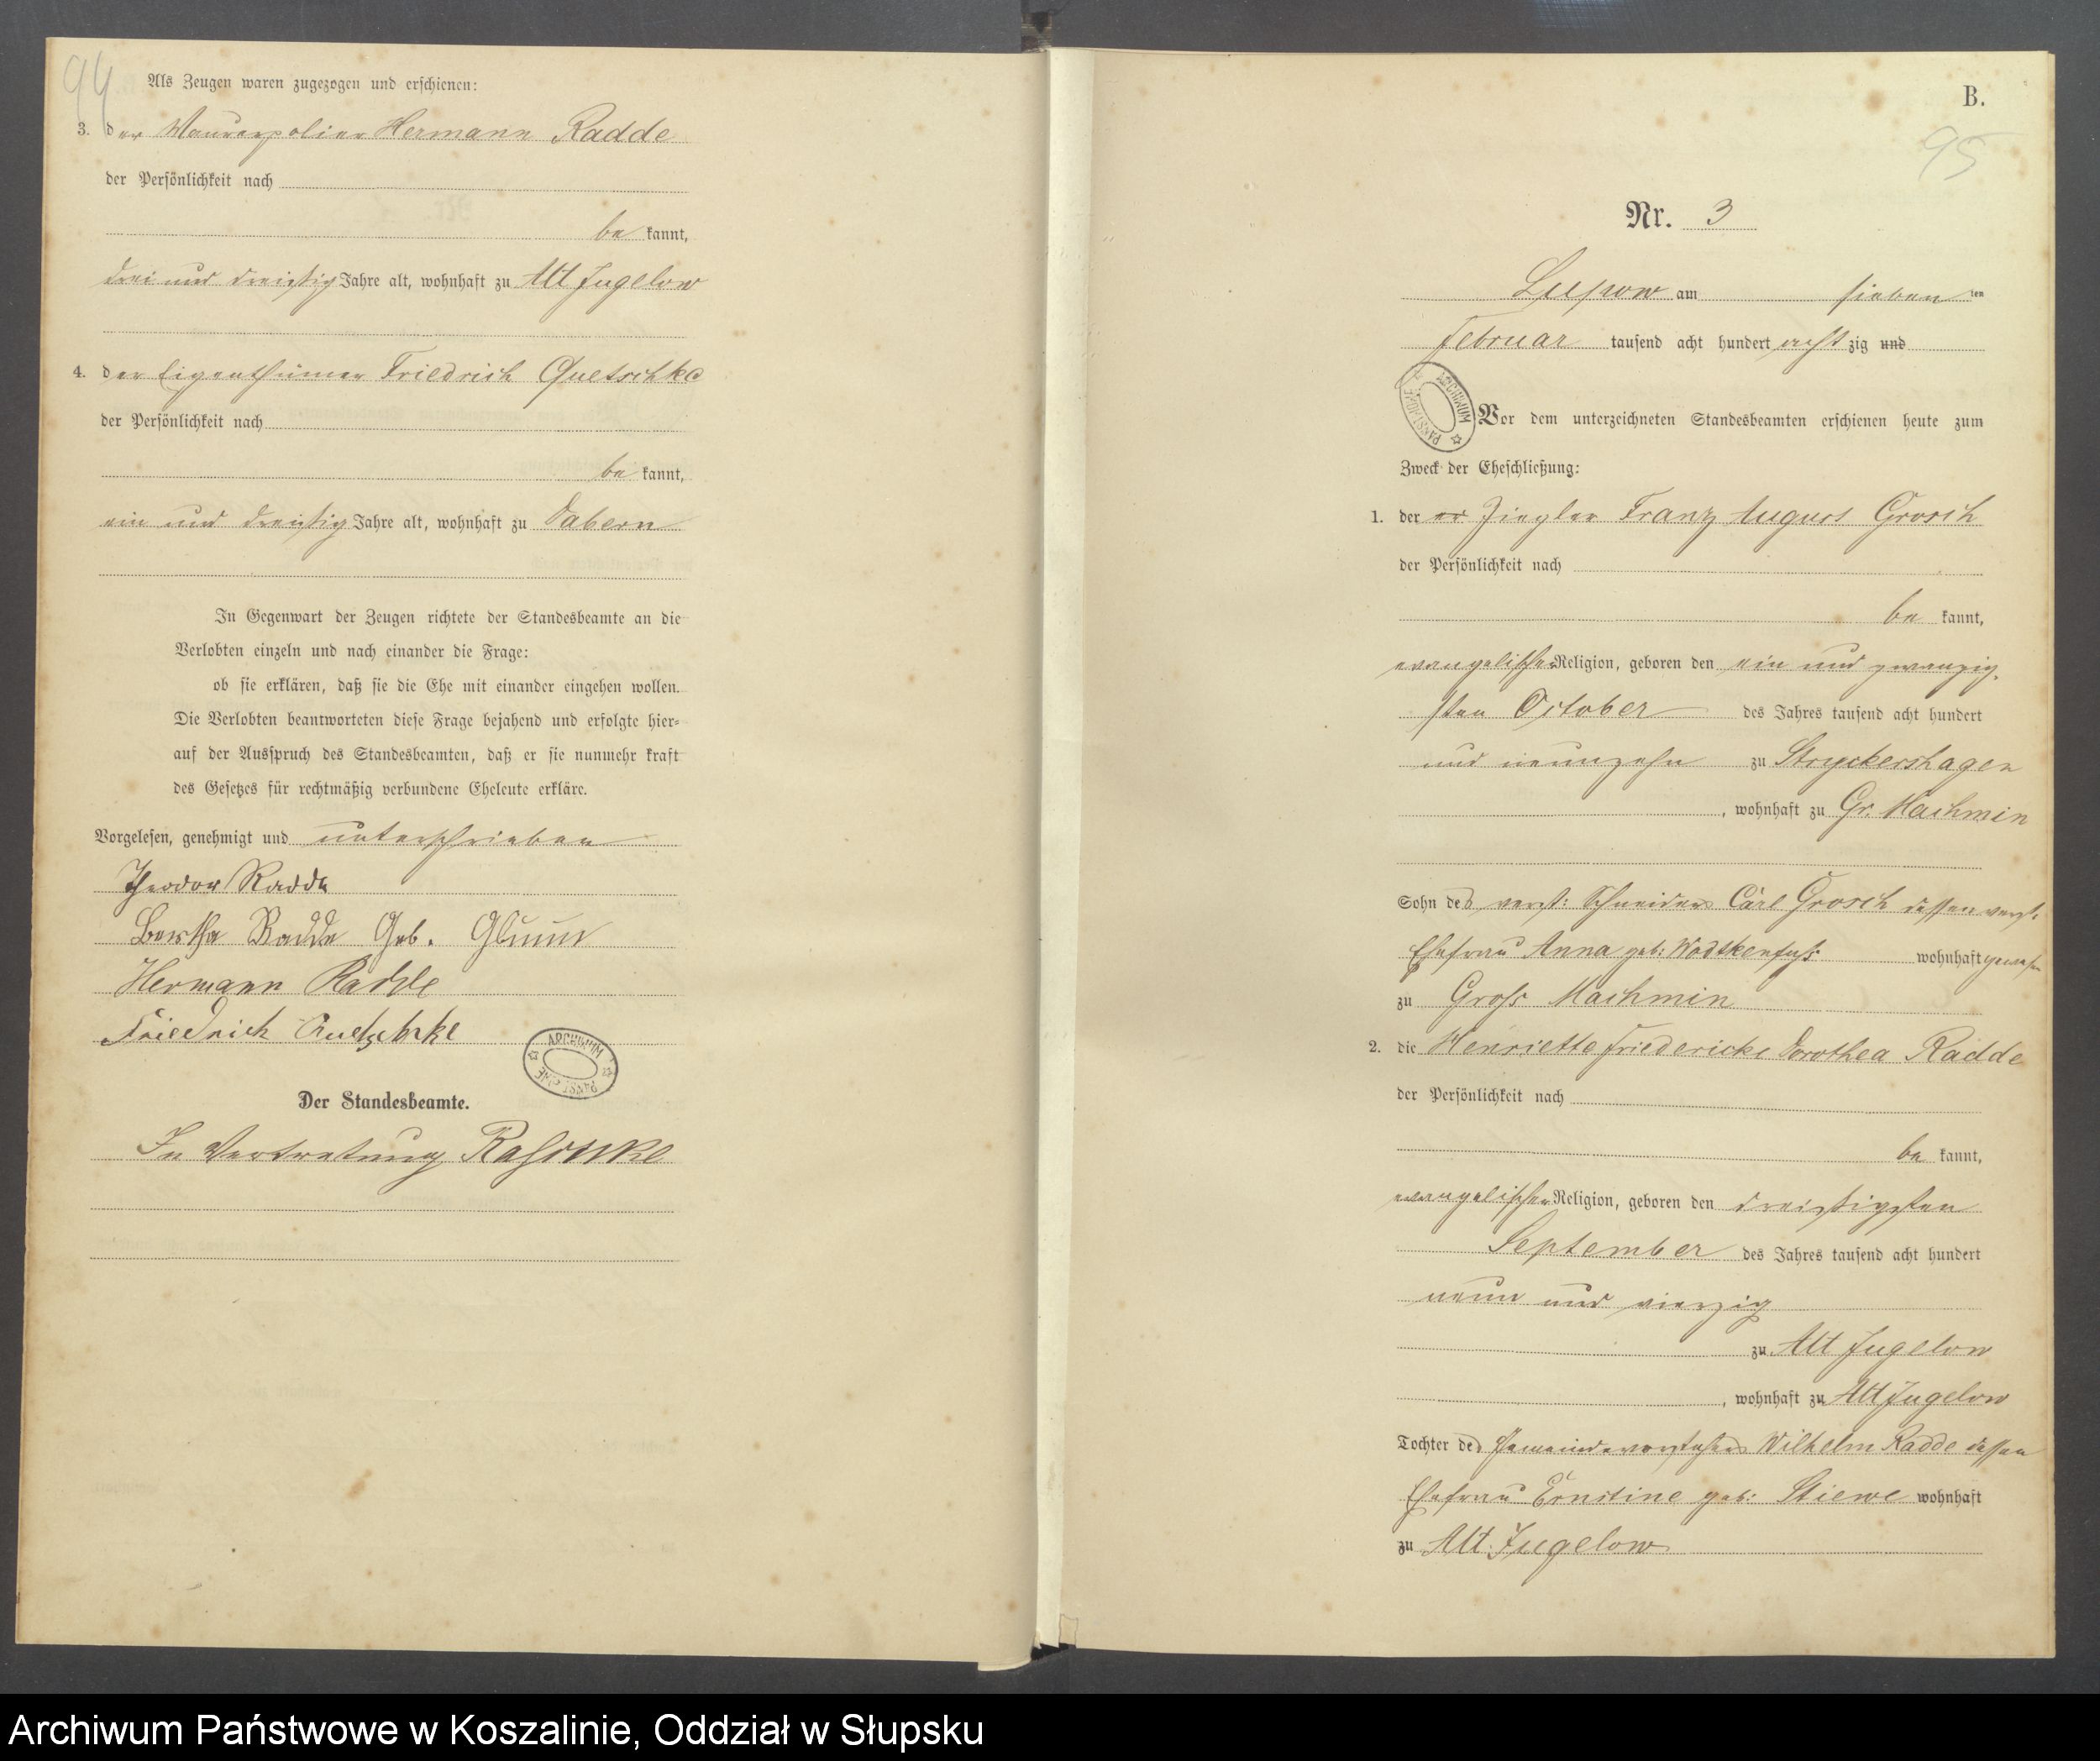 94
Als Zeugen waren zugezogen und erschienen:
3. der Maurerpolier Hermann Radde
der Persönlichkeit nach
be kannt,
drei und dreißig Jahre alt, wohnhaft zu Alt Jugelow
4. der Eigenthümer Friedrich Quetschke
der Persönlichkeit nach
be kannt,
ein und dreißig Jahre alt, wohnhaft zu Dabern
In Gegenwart der Zeugen richtete der Standesbeamte an die
Verlobten einzeln und nach einander die Frage:
ob sie erklären, daß sie die Ehe mit einander eingehen wollen.
Die Verlobten beantworteten diese Frage bejahend und erfolgte hier-
auf der Ausspruch des Standesbeamten, daß er sie nunmehr kraft
des Gesetzes für rechtmäßig verbundene Eheleute erkläre.
Vorgelesen, genehmigt und unterschrieben
Theodor Radde
Bertha Radde Geb.
Hermann Radde
Friedrich
ARCHIWUM PAŃSTWOWE
Der Standesbeamte.
In Vertretung
B.
95
Nr. 3
Lupow am sieben ten
Februar tausend acht hundert acht zig und
ARCHIWUM PAŃSTWOWE
Vor dem unterzeichneten Standesbeamten erschienen heute zum
Zweck der Eheschließung:
1. der er Ziegler Franz August Grosch
der Persönlichkeit nach
be kannt,
evangelischer Religion, geboren den ein und zwanzig-
sten October des Jahres tausend acht hundert
und neunzehn zu Stryckershagen
, wohnhaft zu Gr. Machmin
Sohn des verst: Schneiders Carl Grosch dessen verst.
Ehefrau Anna geb: Wodtkenfuß wohnhaft gewesen
zu Groß Machmin
2. die Henriette Friedericke Dorothea Radde
der Persönlichkeit nach
be kannt,
evangelischer Religion, geboren den dreißigsten
September des Jahres tausend acht hundert
neun und vierzig
zu Alt Jugelow
, wohnhaft zu Alt Jugelow
Tochter des Gemeindevorstehers Wilhelm Radde dessen
Ehefrau Ernstine geb: Stiewe wohnhaft
zu Alt Jugelow
Archiwum Państwowe w Koszalinie, Oddział w Słupsku